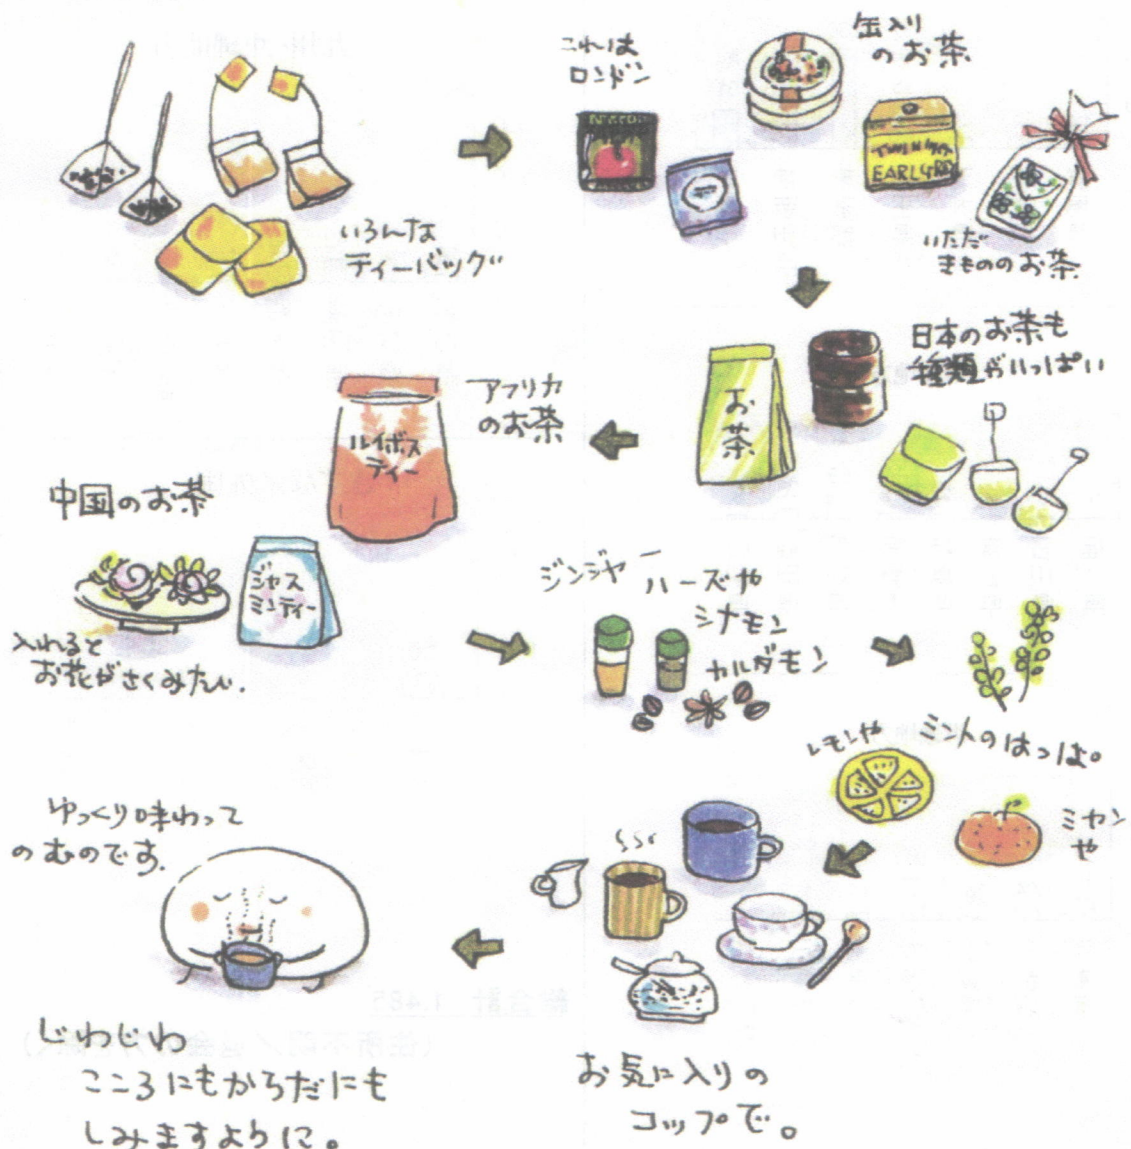 いろんな
ティーバッグ
これは
ロンドン
缶入り
のお茶
EARL GR
いただ
きもののお茶
日本のお茶も
種類がいっぱい
お
茶
アフリカ
のお茶
ルイボス
ティー
中国のお茶
ジャス
ミンティー
入れると
お花がさくみたい.
ジンジャー
ハーブや
シナモン
カルダモン
ミントのはっぱ。
レモンや
ミカン
や
お気に入りの
コップで。
ゆっくり味わって
のむのです.
じわじわ
こころにもからだにも
しみますように。
総合計 1,485